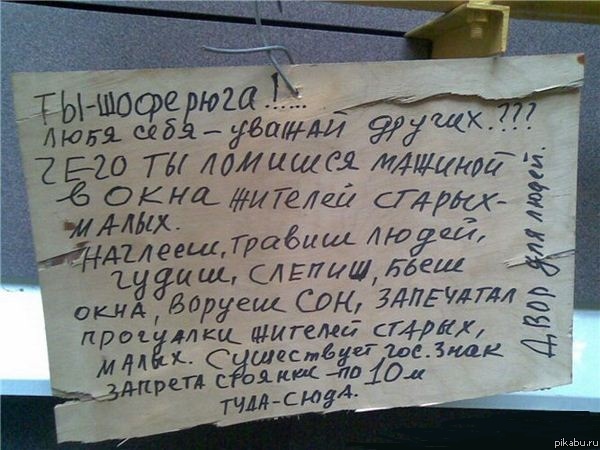 ТЫ-ШОФЕРЮГА!.....
ЛЮБЯ СЕБЯ – УВАЖАЙ ДРУГИХ.???
ЧЕГО ТЫ ЛОМИШСЯ МАШИНОЙ
в ОКНА ЖИТЕЛЕЙ СТАРЫХ-
МАЛЫХ.
НАГЛЕЕШ, ТРАВИШ ЛЮДЕЙ,
ГУДИШ, СЛЕПИШ, БЬЕШ
ОКНА, ВОРУЕШ СОН, ЗАПЕЧАТАЛ
ПРОГУЛКИ ЖИТЕЛЕЙ СТАРЫХ,
МАЛЫХ. СУЩЕСТВУЕТ ГОС. ЗНАК
ЗАПРЕТА СТОЯНКИ – ПО 10 М
ТУДА-СЮДА.
ДВОР ДЛЯ ЛЮДЕЙ.
pikabu.ru